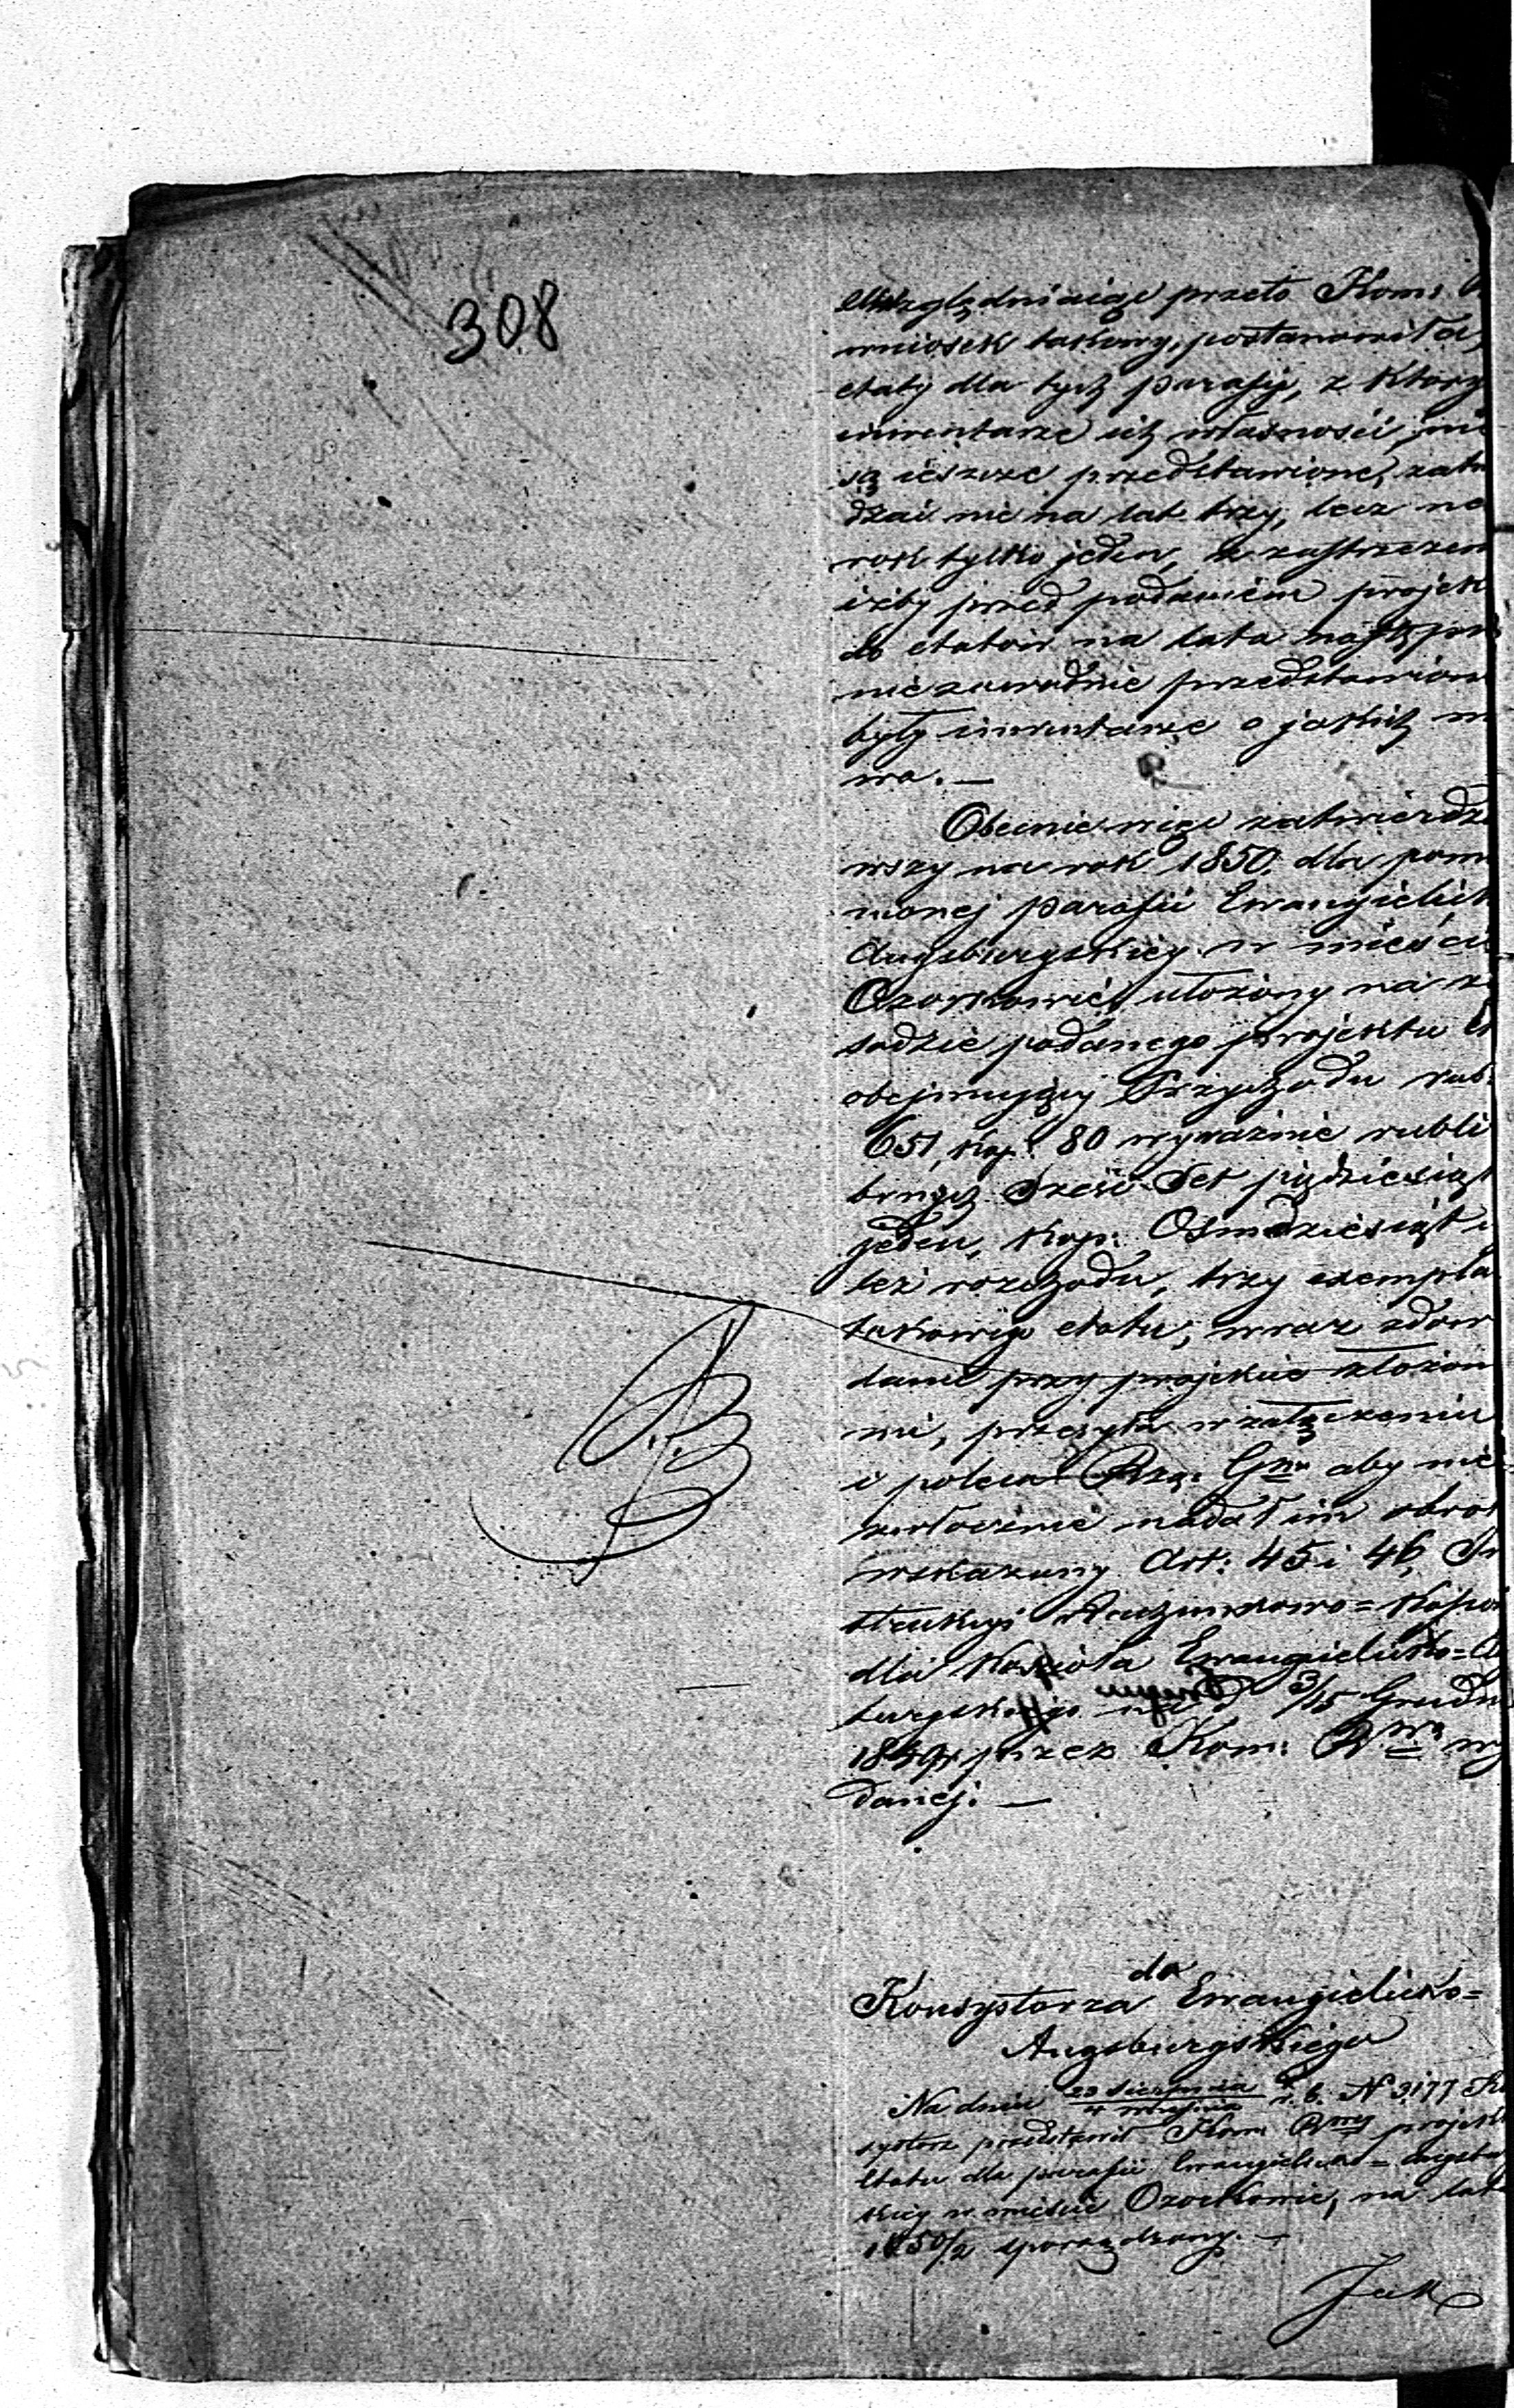 308
Uwzględniając przeto Kom:
wniosek takowy, postanowiła,
etaty dla tych parafij, zktóry
inwentarze ich własności, nie
są ieszcze przedstawione, zatw
dzać nie na lat trzy, lecz na
rok tylko jeden, z zastrzeżen
iżby przed podaniem projek
do etatów na lata następ
niezawodnie przedstawion
były inwentarze o jakich m
wa. —
Obecnie więc zatwierdzi
wszy na rok 1850. dla pom
nionej parafii Ewangielick
Augsburgskiey w mieści
Ozorkowie, ułożony na za
sadzie podanego projektu
obejmujący Przychodu rub:
651, kop: 80 wyraźnie rubli
brnych Sześć Set pięćdziesiąt
jeden, kop: Osmdziesiąt i
leż rozchodu, trzy exempla
takowego etatu, wraz zdow
dami przy projekcie złożon
mi, przesyła w załączeniu
i poleca Rzą: Gnu aby nie
zwłocznie nadał im obrot
wskazany Art: 45 i 46, In
strukcyi Rachunkowo=Kassow
dla Kościoła Ewangielicko=A
burgskiego 3/15 Grudn
1849 r. przez Kom: Rwą wy
danej. —
do
Konsystorza Ewangielicko=
Augsburgskiego
Na dniu 23 Sierpnia / 4 Września r. b. N 3177 Ko
systorz przedstawił Kom: Rwey projekt
Etatu dla parafii Ewangielicko=Augsbu
skiey w mieście Ozorkowie, na lat
1850/2 sporządzony. —
Jak